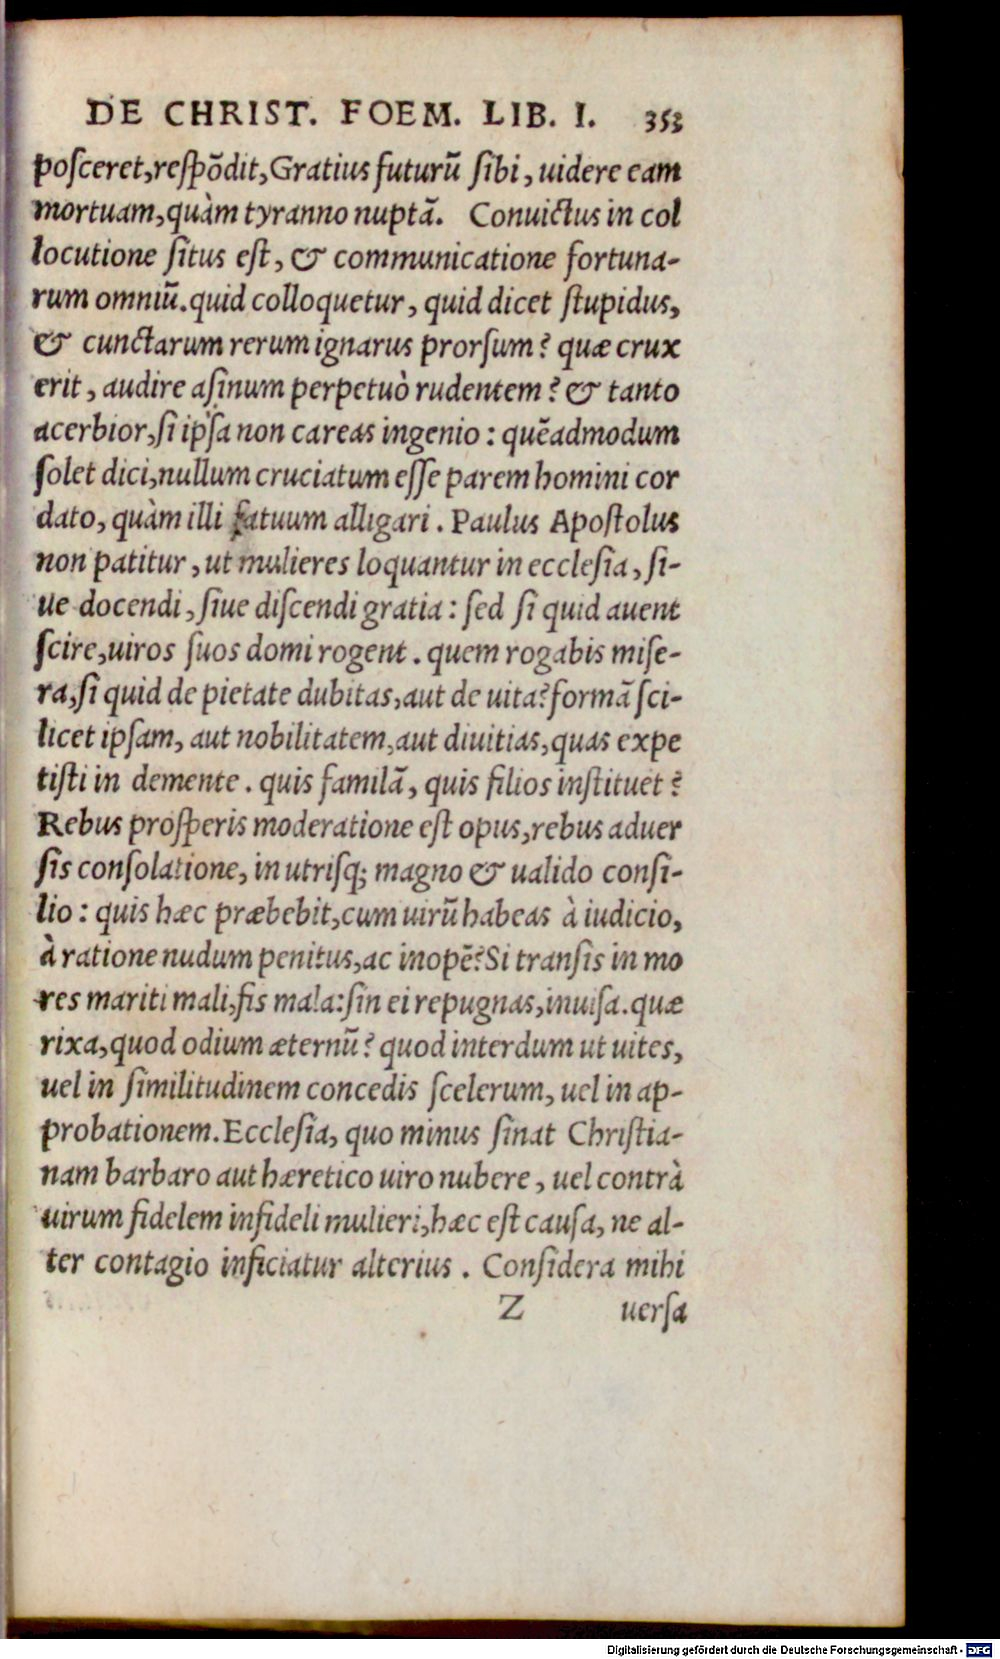 DE CHRIST. FOEM. LIB. I. 353
poſceret,reſpõdit,Gratius futurũ ſibi, uidere eam
mortuam,quàm tyranno nuptã. Conuictus in col
locutione ſitus eſt, & communicatione fortuna-
rum omniũ.quid colloquetur, quid dicet ſtupidus,
& cunctarum rerum ignarus prorſum? quæ crux
erit, audire aſinum perpetuò rudentem? & tanto
acerbior,ſi ipſa non careas ingenio: quẽadmodum
ſolet dici,nullum cruciatum eſſe parem homini cor
dato, quàm illi fatuum alligari. Paulus Apoſtolus
non patitur, ut mulieres loquantur in eccleſia, ſi-
ue docendi, ſiue diſcendi gratia: ſed ſi quid auent
ſcire,uiros ſuos domi rogent. quem rogabis miſe-
ra,ſi quid de pietate dubitas,aut de uita?formã ſci-
licet ipſam, aut nobilitatem,aut diuitias,quas expe
tiſti in demente. quis familã, quis filios inſtituet?
Rebus proſperis moderatione eſt opus,rebus aduer
ſis conſolatione, in utriſq; magno & ualido conſi-
lio: quis hæc præbebit,cum uirũ habeas à iudicio,
à ratione nudum penitus,ac inopẽ?Si tranſis in mo
res mariti mali,fis mala:ſin ei repugnas,inuiſa.quæ
rixa,quod odium æternũ? quod interdum ut uites,
uel in ſimilitudinem concedis ſcelerum, uel in ap-
probationem.Eccleſia, quo minus ſinat Chriſtia-
nam barbaro aut hæretico uiro nubere, uel contrà
uirum fidelem infideli mulieri,hæc eſt cauſa, ne al-
ter contagio inficiatur alterius. Conſidera mihi
Z uerſa
Digitalisierung gefördert durch die Deutsche Forschungsgemeinschaft - DFG